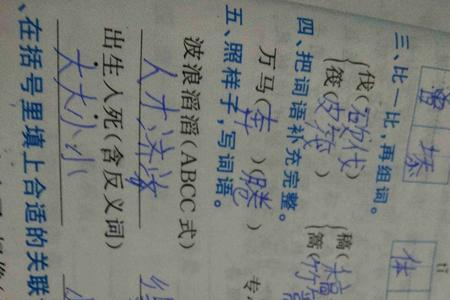 体
三、比一比,再组词。
伐(砍伐) 稿(
筏(皮筏) 篙(竹
四、把词语补充完整。
万马(奔)(腾) 专
五、照样子,写词语。
波浪滔滔(ABCC式)
人才济济
出生入死(含反义词)
大大小小
、在括号里填上合适的关联